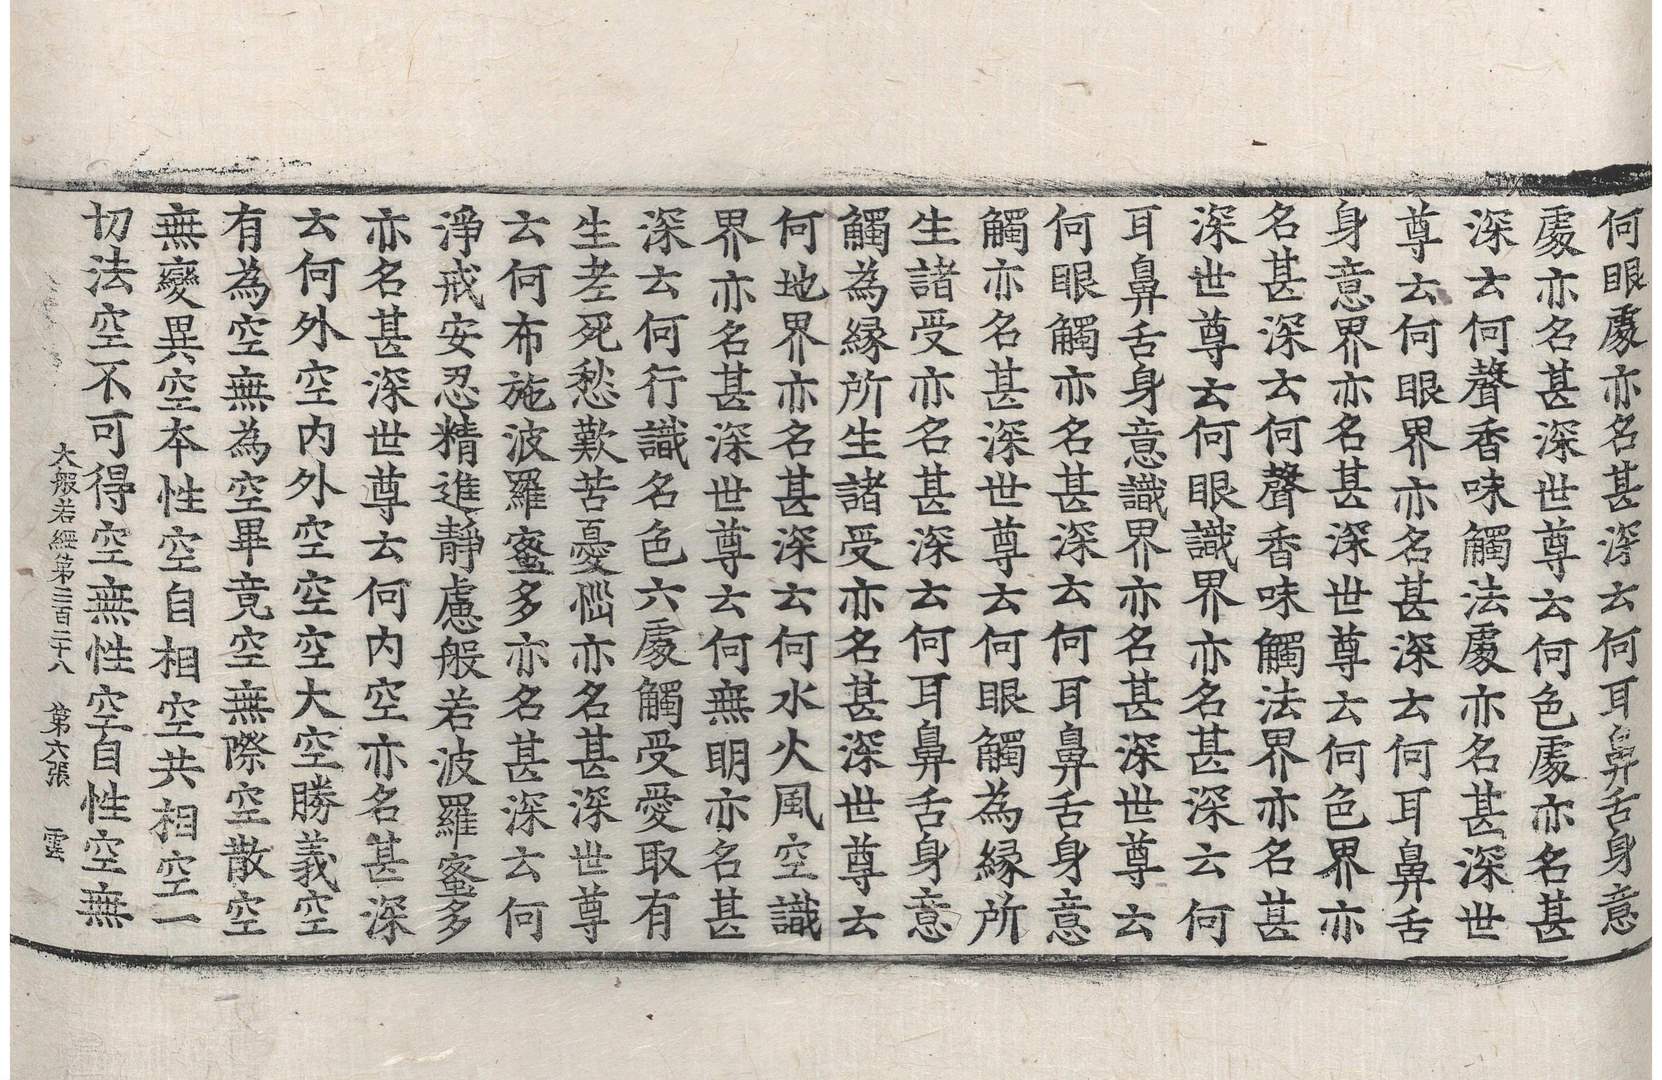 何眼處亦名甚深云何耳鼻舌身意
處亦名甚深世尊云何色處亦名甚
深云何聲香味觸法處亦名甚深世
尊云何眼界亦名甚深云何耳鼻舌
身意界亦名甚深世尊云何色界亦
名甚深云何聲香味觸法界亦名甚
深世尊云何眼識界亦名甚深云何
耳鼻舌身意識界亦名甚深世尊云
何眼觸亦名甚深云何耳鼻舌身意
觸亦名甚深世尊云何眼觸為緣所
生諸受亦名甚深云何耳鼻舌身意
觸為緣所生諸受亦名甚深世尊云
何地界亦名甚深云何水火風空識
界亦名甚深世尊云何無明亦名甚
深云何行識名色六處觸受愛取有
生老死愁歎苦憂惱亦名甚深世尊
云何布施波羅蜜多亦名甚深云何
淨戒安忍精進靜慮般若波羅蜜多
亦名甚深世尊云何內空亦名甚深
云何外空內外空空空大空勝義空
有為空無為空畢竟空無際空散空
無變異空本性空自相空共相空一
切法空不可得空無性空自性空無
大般若經第三百二十八 第六張 雲